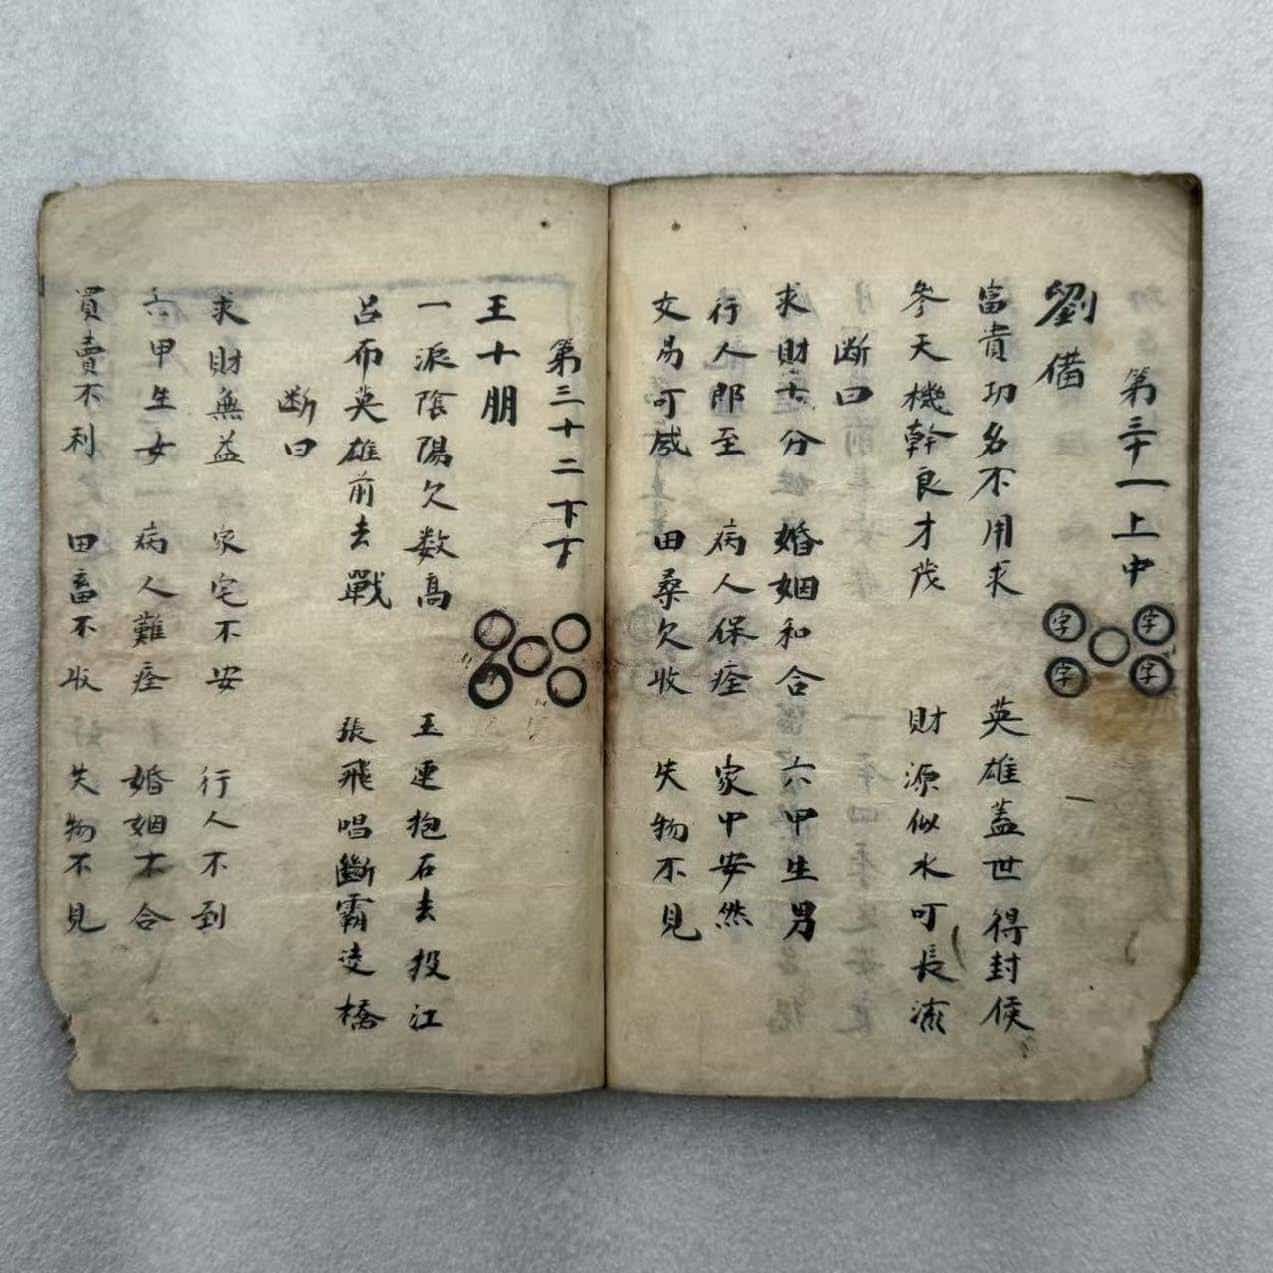 第三十一上中
字 字
字 字
劉備
富貴功名不用求 英雄蓋世得封侯
參天機幹良才茂 財源似水可長流
斷曰
求財十分 婚姻和合 六甲生男
行人即至 病人保痊 家中安然
交易可成 田桑欠收 失物不見
第三十二下下
王十朋
一派陰陽欠数高 玉連抱石去投江
呂布英雄前去戰 張飛唱斷霸凌橋
斷曰
求財無益 家宅不安 行人不到
六甲生女 病人難痊 婚姻不合
買賣不利 田畜不收 失物不見